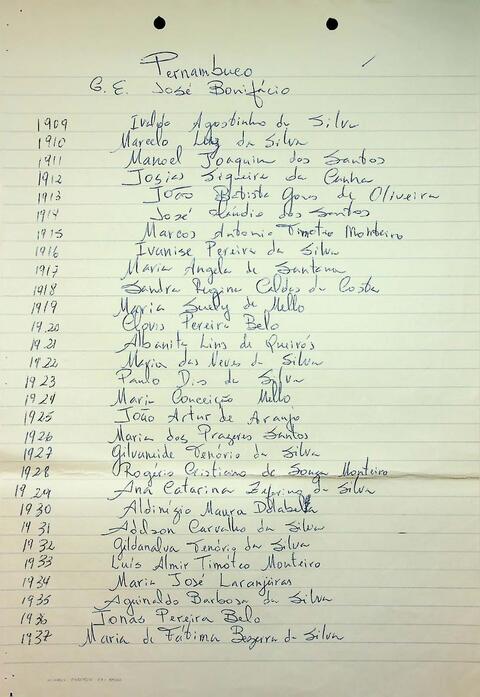 Pernambuco
G. E. José Bonifácio
1909 Ivaldo Agostinho da Silva
1910 Marcelo Luz da Silva
1911 Manoel Joaquim dos Santos
1912 Josias Siqueira da Cunha
1913 João Batista Gomes de Oliveira
1914 José Cláudio dos Santos
1915 Marcos Antonio Timoteo Monteiro
1916 Ivanise Pereira da Silva
1917 Maria Angela de Santana
1918 Sandra Regina Caldas da Costa
1919 Maria Suely de Mello
1920 Clovis Pereira Belo
1921 Albanita Lins de Queirós
1922 Maria das Neves da Silva
1923 Paulo Dias da Silva
1924 Maria Conceição Mello
1925 João Artur de Araujo
1926 Maria dos Prazeres Santos
1927 Gilvaneide Tenório da Silva
1928 Rogério Cristiano de Souza Monteiro
1929 Ana Catarina da Silva
1930 Maura
1931 Adilson Carvalho da Silva
1932 Gildanalva Tenório da Silva
1933 Luís Almir Timóteo Monteiro
1934 Maria José Laranjeiras
1935 Aguinaldo Barbosa da Silva
1936 Jonas Pereira Belo
1937 Maria de Fátima Bezerra da Silva